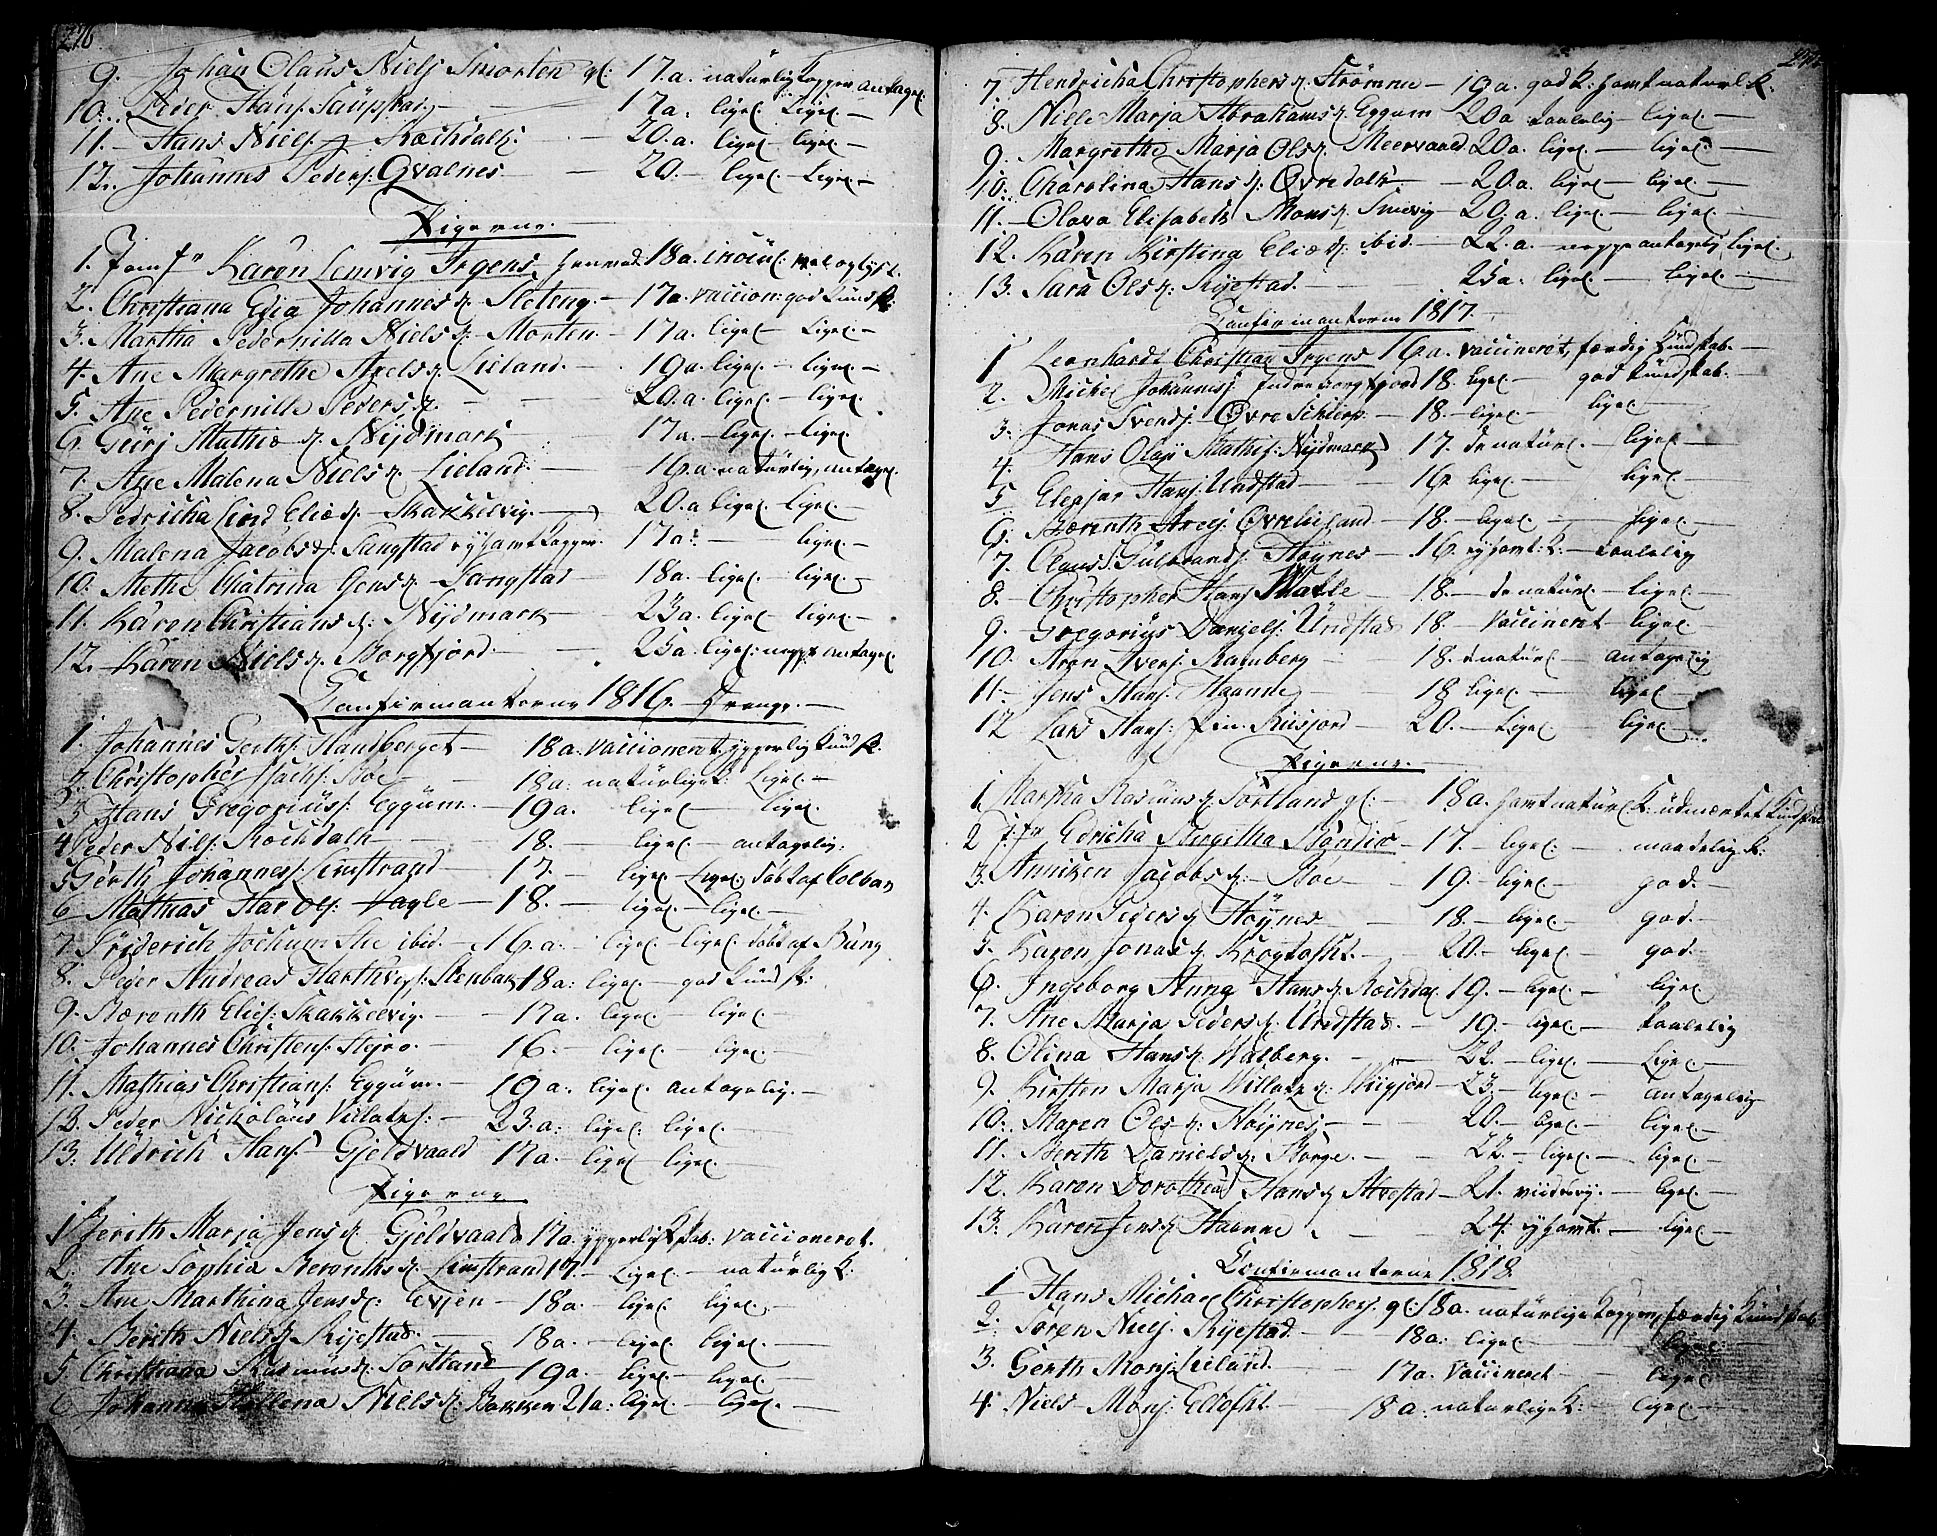 276
9. Johan Olaus Niels Smorten gl: 17.a. naturlig Kopper antagel.
10. Peder Hans: 17a. ligel. Ligel.—
11.— Hans Niels: Rochdalk: — 20.a. ligel.— ligel.—
12. Johannes Peders: Qvalnes — 20.— ligel.— Ligel.—
Pigerne.
1. Jomfr Karen Lemvig Irgens 18a. inocul. vel oplyst.
2. Christiana Johannesd: Steteng.— 17a. vaccion: god Kundsk:
3. Martha Pedernilla Nielsd: Morten 17a. ligel.— Ligel.—
4. Ane Margrethe Axelsd: Lieland.— 19a. ligel.— ligel.—
5. Ane Pedernille Pedersd: — 20.a. ligel.— ligel.
6. Gurj Mathiæd: Nijdmark 17a.— ligel.— ligel.
7. Ane Malena Nielsd: Lieland.— 16.a. naturlig, antagel.
8. Pedricha Lind Eliæd: Skakkelvig.— 20.a ligel.— ligel.—
9. Malena Jacobsd: Sangstad ej hamt Kopper. 17a:— ligel.—
10. Methe Chatrina Jensd: Sangstad 18a. ligel.— ligel.—
11. Karen Christiansd: Nijdmark 23a. ligel— ligel.—
12. Karen Nielsd: Borgfjord.— 25a. ligel: neppe antagel.
Confirmanterne 1816. Drenge.—
1. Johannes Gerths: Handberget— 18a. vaccioneret, ypperlig Kundsk:
2. Christopher Isachs: Böe— 18a: naturlige K: Ligel.—
3 Hans Gregorius: Eggum.— 19a. ligel— ligel.
4 Peder Niels: Rochdalk— 18.— ligel— antagelig:
5 Gerth Johannes: Limstrand— 17.— ligel.— Ligel: døbt af Kolban
6 Mathias Harols: Hagle— 18.— ligel.— ligel.—
7. Friderich Jochum ibid.— 16.a.— ligel.— ligel. døbt af Bung
8. Peder Andreas Harthvigs: Stenbak 18a: ligel.— god Kundsk:
9. Bærenth Elies: Skakkelvig.— 17a. ligel.— ligel.—
10. Johannes Christens: Styro.— 16.— ligel.— ligel.—
11. Mathias Christians: Eggum.— 19a. ligel. antagelig.—
12. Peder Nickolaus Villads:— 23.a: ligel: ligel.—
13. Uldrich Hans: Gjeldvaald 17a.— ligel— ligel.—
Pigerne
1 Berith Marja Jensd: Gjeldvaald 17a. ypperlig Kskab: vaccioneret.
2. Ane Sophia Beronthsd: Limstrand 17.— Ligel.— naturlig K:
3. Ane Marthina Jensd: Evjen— 18a.— ligel.— ligel.—
4. Berith Nielsd: Rijestad.— 18a.— ligel. ligel.—
5. Christiana Rasmusd: Sortland— 19a. ligel.— ligel.—
6 Johanna Hellena Nielsd: Bakken 21a: ligel.— ligel.—
7. Hendricha Christophersd: Strömme— 19a. god K: hamt naturl K.
8. Nille Marja Abrahamsd: Eggum 20a. taalelig— ligel.—
9. Margrethe Marja Olsd: Meervaald 20a. ligel.— ligel.—
10. Charolina Hansd: Øvredalk— 20.a. ligel— ligel.—
11.— Olava Elisabeth Monsd: Smevig— 20.a. ligel.— ligel.—
12. Karen Kirstina Eliæd: ibid.— 22.a.— neppe antagelig ligel.
13. Sara Olsd: Rijestad.— 25a. ligel.— ligel.—
Confirmanterne 1817.
1 Leonhardt Christian Irgens 16a. vaccineret, færdig Kundskab.—
2. Michel Johannes: Indre Borgfjord 18. ligel.— god Kundskab.—
3. Jonas Svends: Øvre Schierp.— 18.— ligel.— ligel—
4. Hans Olai Mathis: Nijdmark 17. de natur.— ligel.—
5 Eleasar Hans: Undstad— 16. ligel.— ligel.—
6. Bærenth Ares: Øvrelieland.— 18.— ligel.— ligel.—
7. Claus Gulbrands: Höynes— 16. ej hamt K:— taalelig
8.— Christopher Hans: Walle— 18.— de natur.— ligel—
9. Gregorius Daniels: Undstad 18.— vaccineret— ligel—
10. Aron Ivers: Ramberg— 18. d natur.— antagelig
11.— Jens Hans: Haanne— 18 ligel.— ligel—
12 Lars Hans: fin Riisjord— 20.— Ligel— ligel—
Pigerne.—
1. Martha Rasmusd: Sortland gl:— 18a. hamt naturl K: udmærket Kundskab
2 jfr Edricha Bergitha Bandix— 17.— ligel.— maadelig K:
3. Anniken Jacobsd:— Böe— 19.— ligel.— god.—
4. Karen Pedersd: Höynes— 18.— ligel— god.—
5. Karen Jonasd: Krogtofht.— 20.— ligel.— god.—
6. Ingeborg Anna Hansd: Rochdal. 19.— ligel.— ligel
7. Ane Marja Pedersd: Undstad.— 19.— ligel.— taalelig
8. Olina Hansd: Halberg.— 22.— ligel.— Ligel—
9. Kirsten Marja Willadsd: Wigjord— 23.— ligel.— antagelig
10. Maren Olsd: Höynes— 20.— ligel.— ligel.—
11. Berith Danielsd: Borge.— 22.— ligel.— ligel.—
12. Karen Dorothea Hansd: Alvestad— 21. — ligel.—
13. Karen Jensd: Haanne. 24. ej hamt.— ligel—
Confirmanterne 1818.
1 Hans Michael Christophers: gl: 18a. naturlige Kopper, færdig Kundskab
2. Sören Niels: Rijestad.— 18a: ligel.— ligel.—
3. Gerth Mons: Lieland.— 17a. vaccineret— ligel—
4. Niels Mons: Eltofht.— 18a: naturlige K:— ligel.—